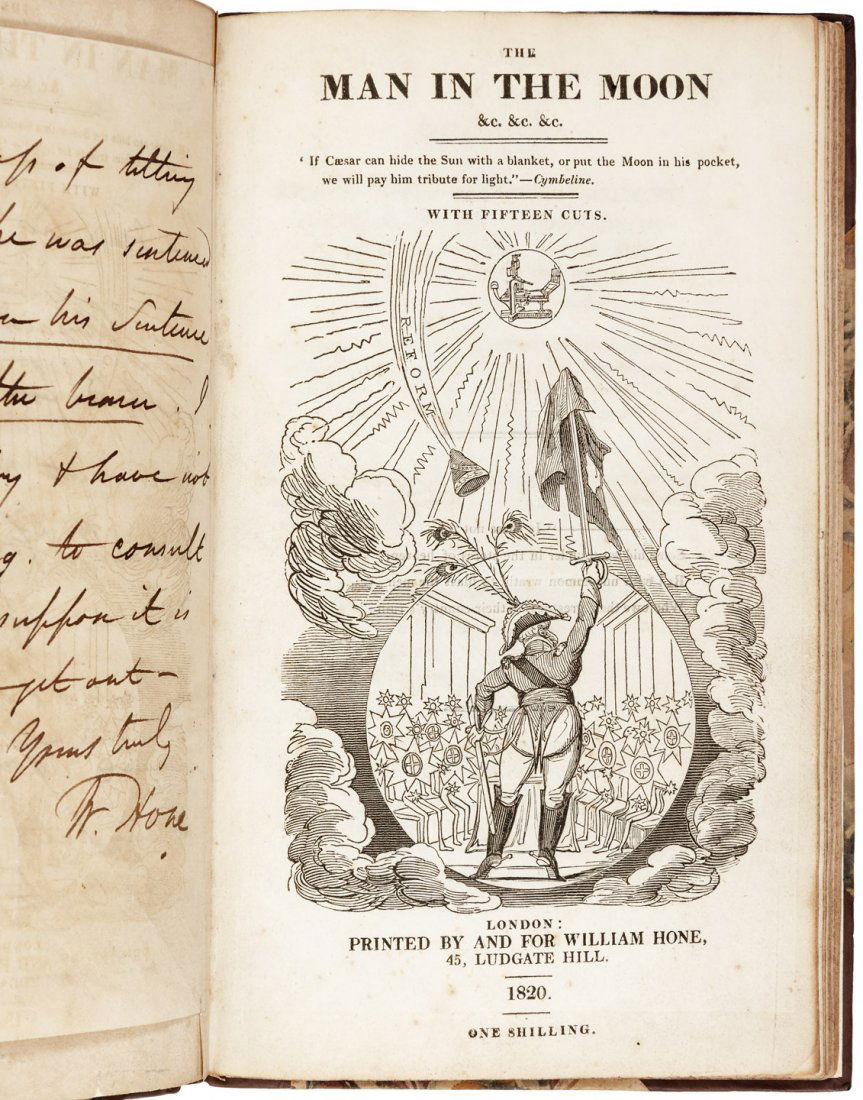 of tilting
he was sentenced
his Sentence
the bearer. I
& have not
to consult
suppose it is
get out —
Yours truly
W. Hone
THE
MAN IN THE MOON
&c. &c. &c.
‘ If Cæsar can hide the Sun with a blanket, or put the Moon in his pocket,
we will pay him tribute for light."—Cymbeline.
WITH FIFTEEN CUTS.
REFORM
LONDON:
PRINTED BY AND FOR WILLIAM HONE,
45, LUDGATE HILL.
1820.
ONE SHILLING.